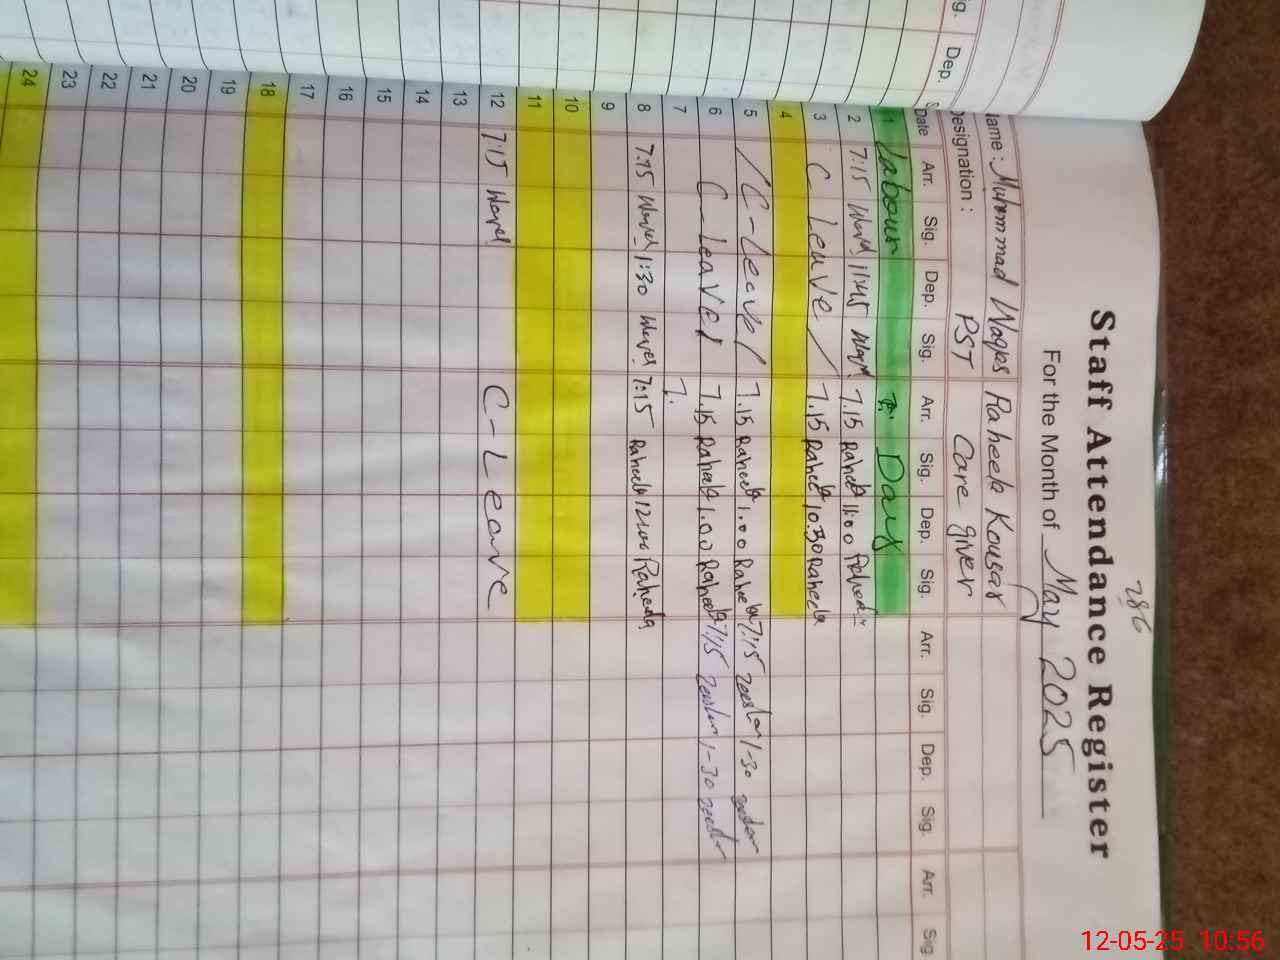 786
Staff Attendance Register
For the Month of May 2025
Name: Muhammad Waqas Raheela Kousar
Designation: PST Care giver
Date Arr. Sig. Dep. Sig. Arr. Sig. Dep. Sig. Arr. Sig. Dep. Sig. Arr. Sig
1 Labour Day
2 7:15 11:45 7.15 11:00
3 C Leave 7.15 Raheela 10:30 Raheela
4
5 C-Leave 7.15 Raheela 1.00 Raheela 7:15 1-30
6 C-Leave 7.15 Raheela 1.00 Raheela 7:15 1-30
7 7.
8 7:15 1:30 7:15 Raheela 12:00 Raheela
9
10
11
12 7:15 C-Leave
13
14
15
16
17
18
19
20
21
22
23
24
ig. Dep.
12-05-25 10:56